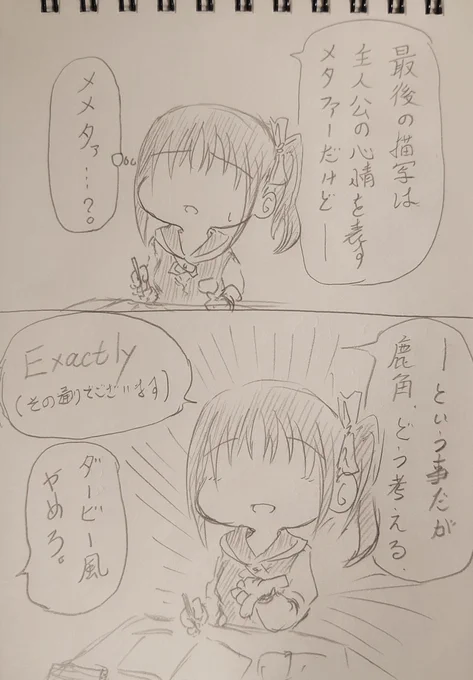 最後の描写は
主人公の心情を表す
メタファーだけど―
メメタァ…？。
―という事だが
鹿角、どう考える.
Exactly
(その通りでございます)
ダービー風
やめろ。